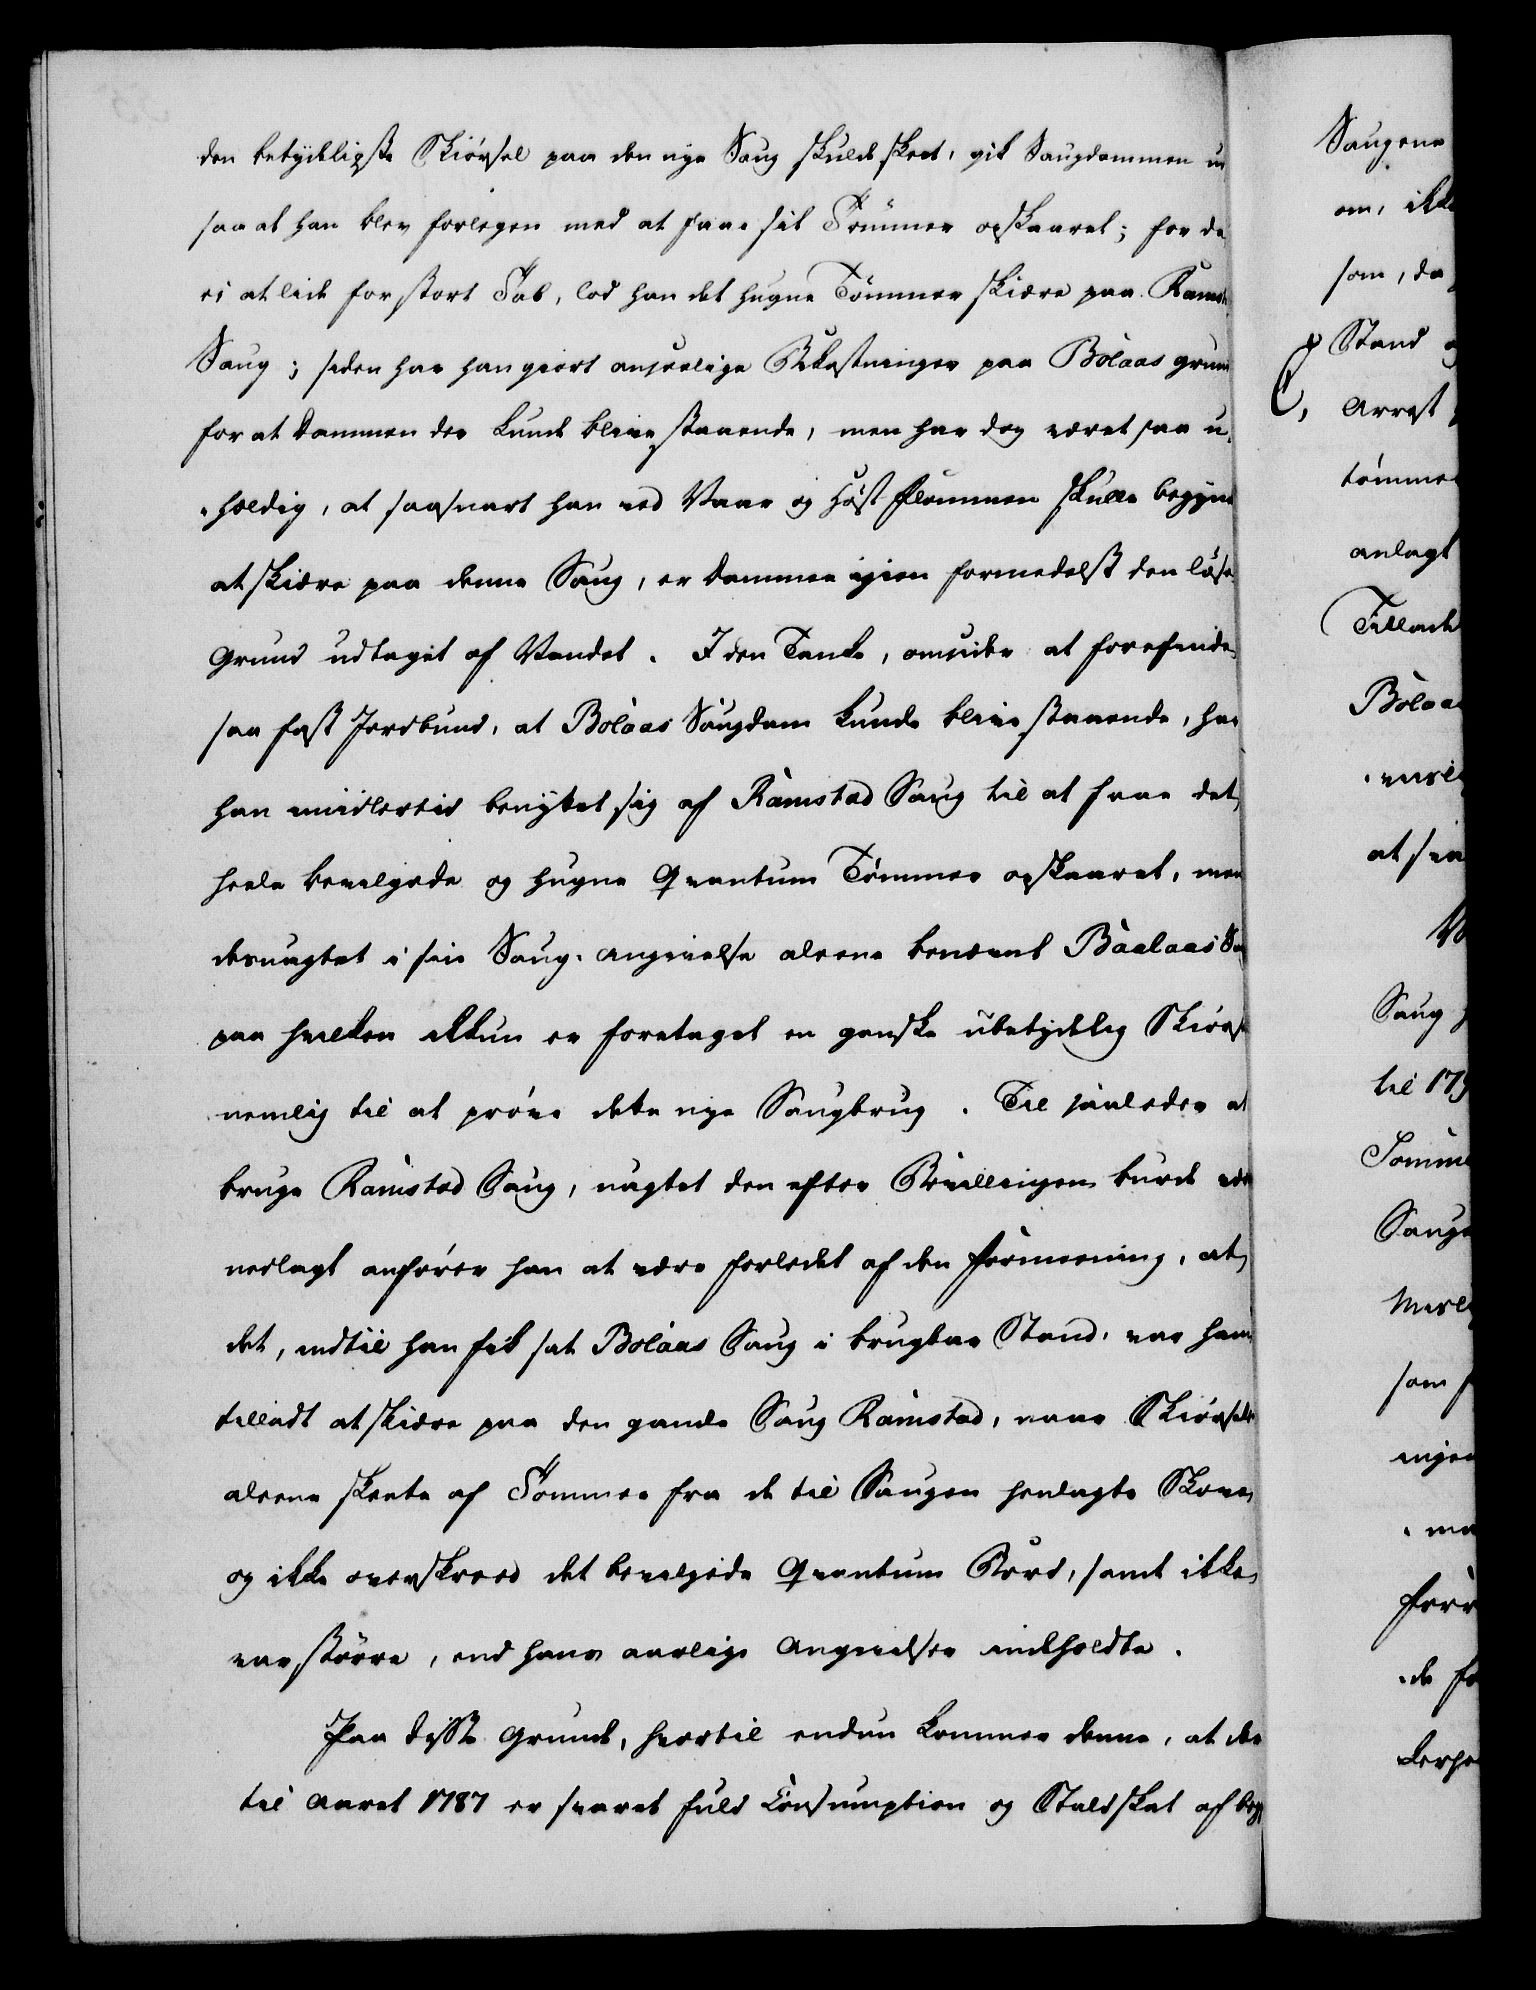 den betydeligste Skiørsel paa den nye Saug skulde skeet, gik Saugdammen ud
saa at han blev forlegen med at faae sit Tømmer opskaaret; for da
ei at lide for stort Tab, lod han det hugne Tømmer skiære paa Ramst
Saug; siden har han giort anseelige Bekostninger paa Bòlaas grund
for at Dammen der kunde blive staaende, men har dog været saa u-
-heldig, at saasnart han ved Vaar og Høst flommen skulle begynde
at skiære paa denne Saug, er Dammen igien formedelst den løse
Grund udtaget af Vandet. I den Tanke, omsider at forefinde
saa fast Jordbund, at Bolaas Saugdam kunde blive staaende, har
han imidlertid benyttet sig af Ramstad Saug til at faae det
heele bevilgede og hugne Qvantum Tømmer opskaaret, men
desuagtet i sin Saug-angivelse aleene benævnt Baalaas Sau
paa hvilken ikkun er foretaget en ganske ubetydelig Skiørs
nemlig til at prøve dette nye Saugbrug. Til saaledes at
bruge Ramstad Saug, uagtet den efter Bevillingen burde være
nedlagt anfører han at være forledet af den formeening, at
det, indtil han fik sat Bolaas Saug i brugbar Stand, var ham
tilladt at skiære paa den gamle Saug Ramstad, naar Skiørselen
aleene skeete af Tømmer fra de til Saugen henlagte Skove
og ikke overskreed det bevilgede Qvantum Bord, samt ikke
var større, end hans aarlige Angivelser indholdte.
Paa disse Grunde, hvortil endnu kommer denne, at der
til Aaret 1787 er svaret fuld Consumption og Stald skat af beg
Saugene
om, ikke
som, da
Stand
C, Arrest
tømmer
anlagt
Tilladt
Bòlaa
at
Saug
til 179
Tomme
Sauge
som